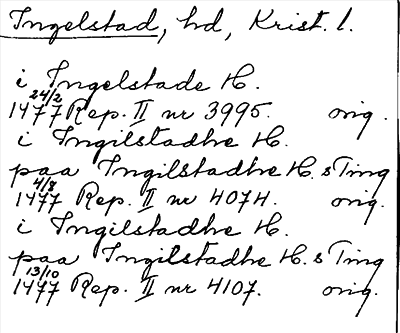 Ingelstad, hd, Krist. l.
i Ingelstade H.
24/2
1477 Rep. II nr 3995. orig.
i Ingilstadhe H.
paa Ingilstadhe H.s Ting
4/8
1477 Rep. II nr 4074. orig.
i Ingilstadhe H.
paa Ingilstadhe H.s Ting
13/10
1477 Rep. II nr 4107. orig.